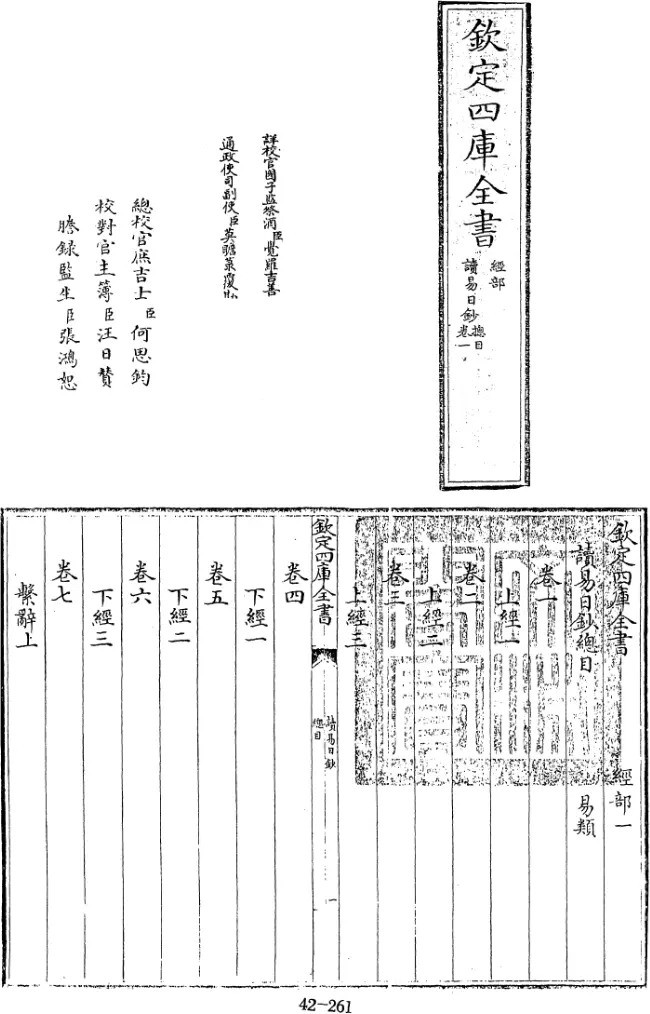 欽定四庫全書
經部
讀易日鈔 總目
卷一
詳校官國子監祭酒臣覺羅吉善
通政使司副使臣莫瞻菉覆勘
總校官庶吉士臣何思鈞
校對官主簿臣汪日贊
謄錄監生臣張鴻恕
欽定四庫全書 經部一
讀易日鈔總目 易類
卷一
上經一
卷二
上經二
卷三
上經三
欽定四庫全書
讀易日鈔
總目
一
卷四
下經一
卷五
下經二
卷六
下經三
卷七
繫辭上
42-261